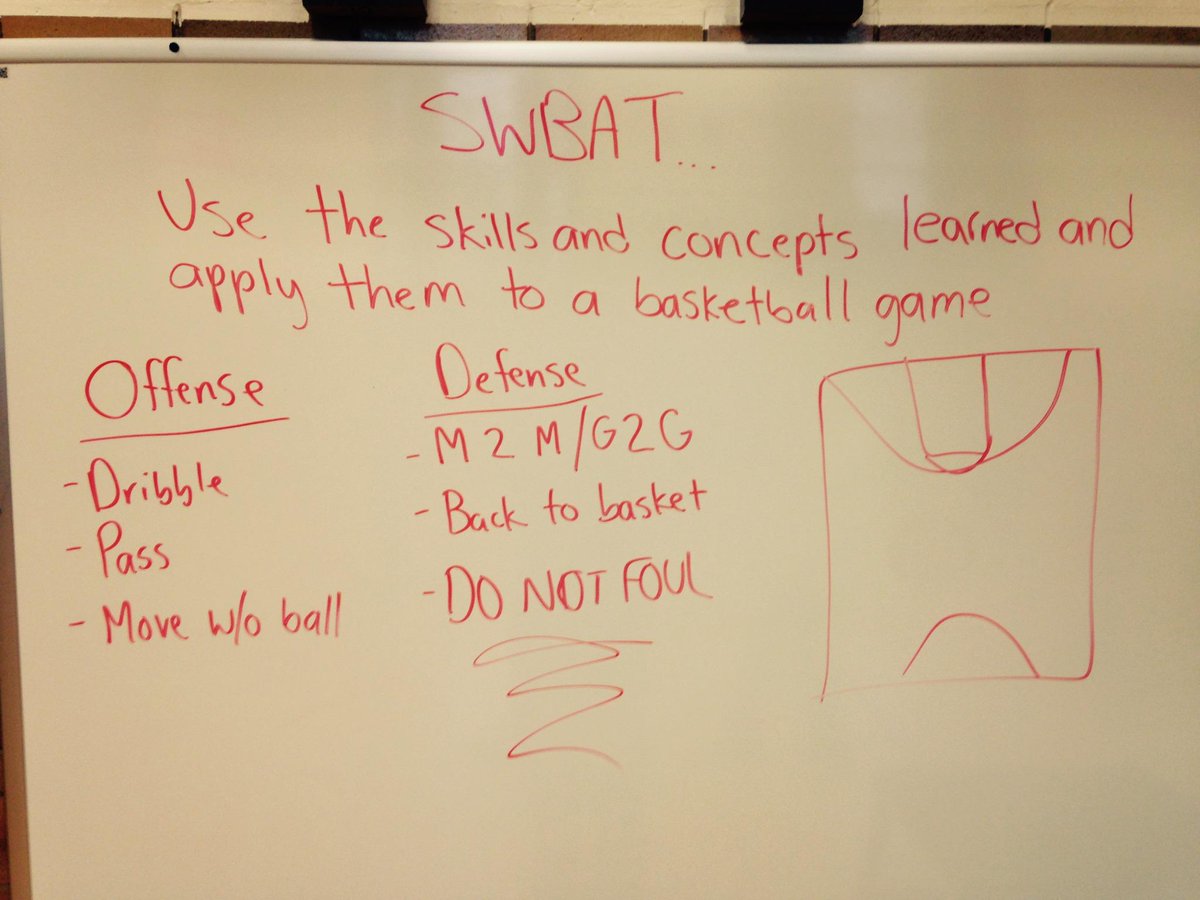 SWBAT...
Use the skills and concepts learned and
apply them to a basketball game
Offense
- Dribble
- Pass
- Move w/o ball
Defense
- M 2 M/G2G
- Back to basket
- DO NOT FOUL